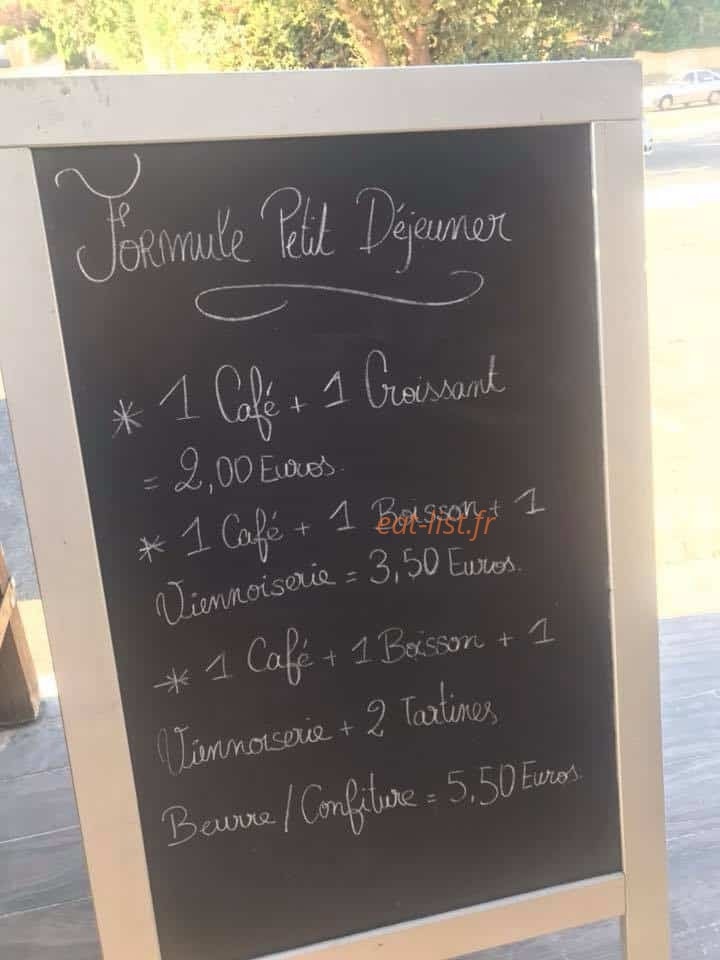 Formule Petit Déjeuner
* 1 Café + 1 Croissant
= 2,00 Euros.
* 1 Café + 1 Boisson + 1
eat-list.fr
Viennoiserie = 3,50 Euros.
* 1 Café + 1 Boisson + 1
Viennoiserie + 2 Tartines
Beurre / Confiture = 5,50 Euros.